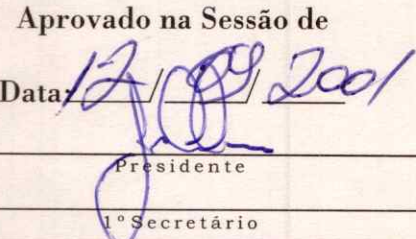 Aprovado na Sessão de
Data: 12/09/2001
Presidente
1º Secretário